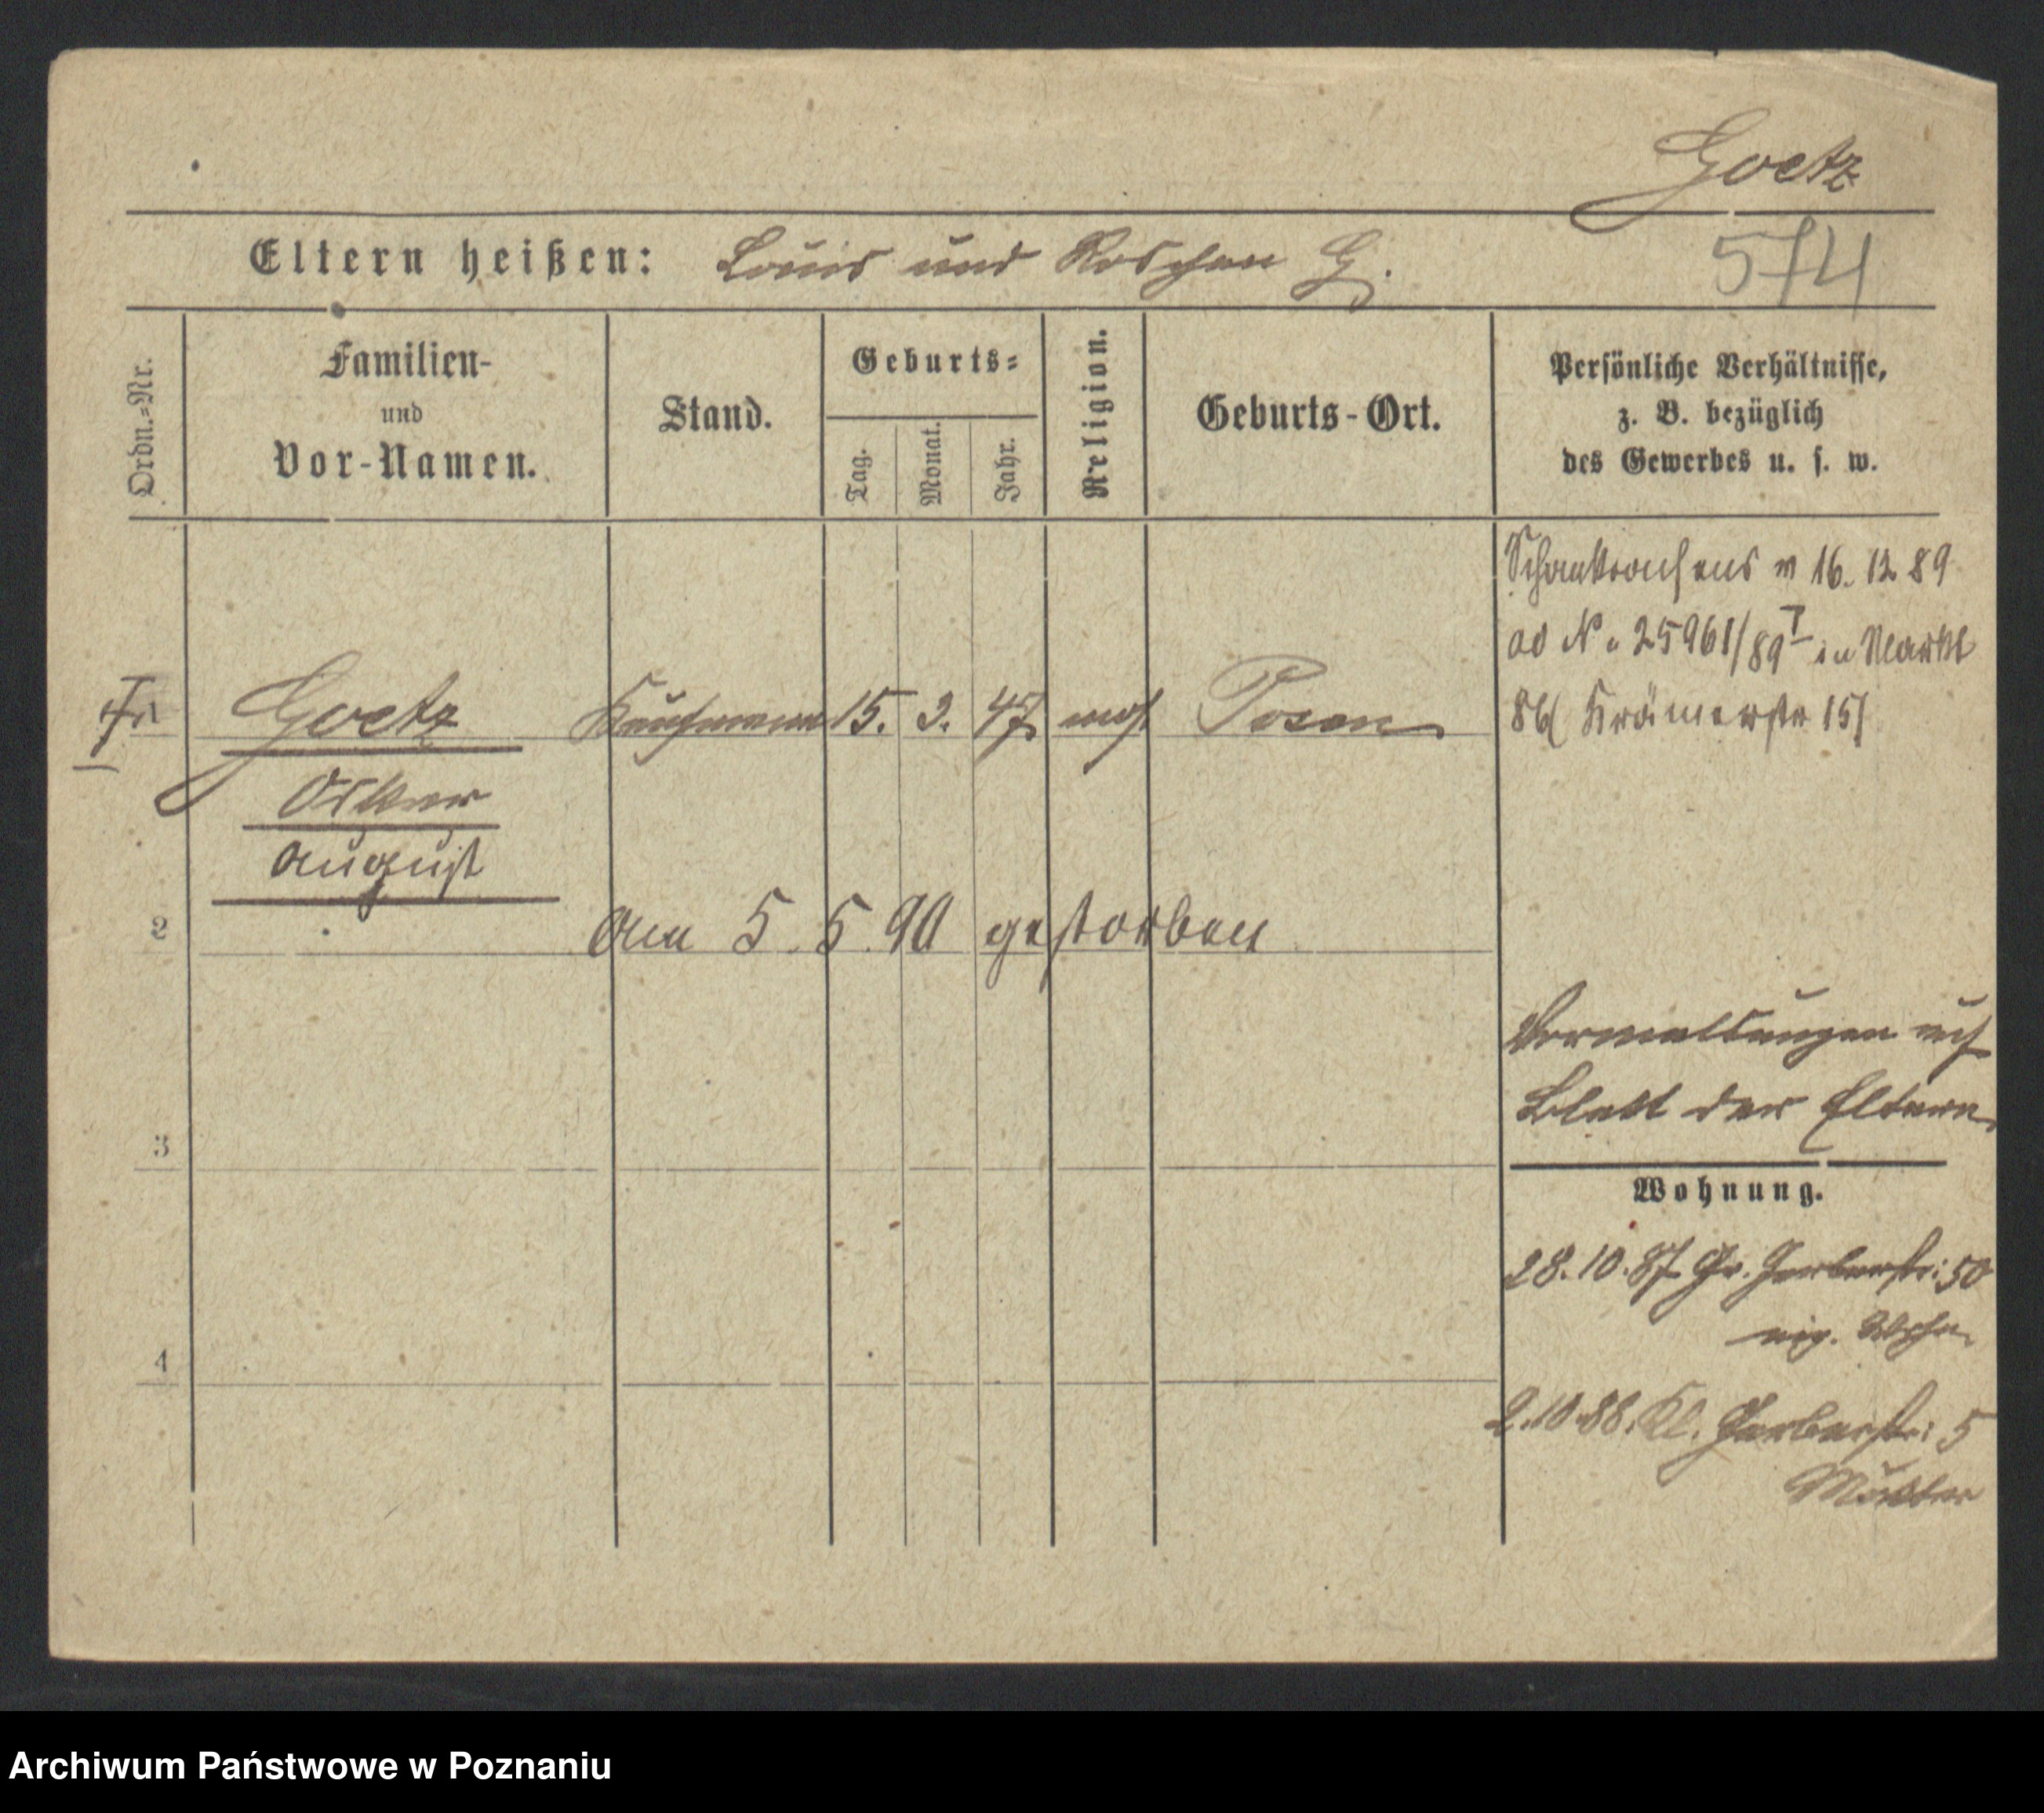 Goetz
Eltern heißen: Louis und Röschen G.
574
Ordn.=Nr.
Familien-
und
Vor-Namen.
Stand.
Geburts=
Tag.
Monat.
Jahr.
Religion.
Geburts-Ort.
Persönliche Verhältnisse,
z. B. bezüglich
des Gewerbes u. s. w.
Schankconsens v 16. 12 89
ad N. 25961/89 I in Markt
86/ Krämerstr 15/
Goetz Kaufmann 15. 3. 47 mos Posen
Oskar
August
2
Am 5. 5. 90 gestorben
Vermeldungen auf
Blatt der Eltern
3
Wohnung.
28. 10. 87 Gr. Gerberstr: 50
eig. Wohn.
4
2. 10 88. Kl. Gerberstr: 5
Mutter
Archiwum Państwowe w Poznaniu